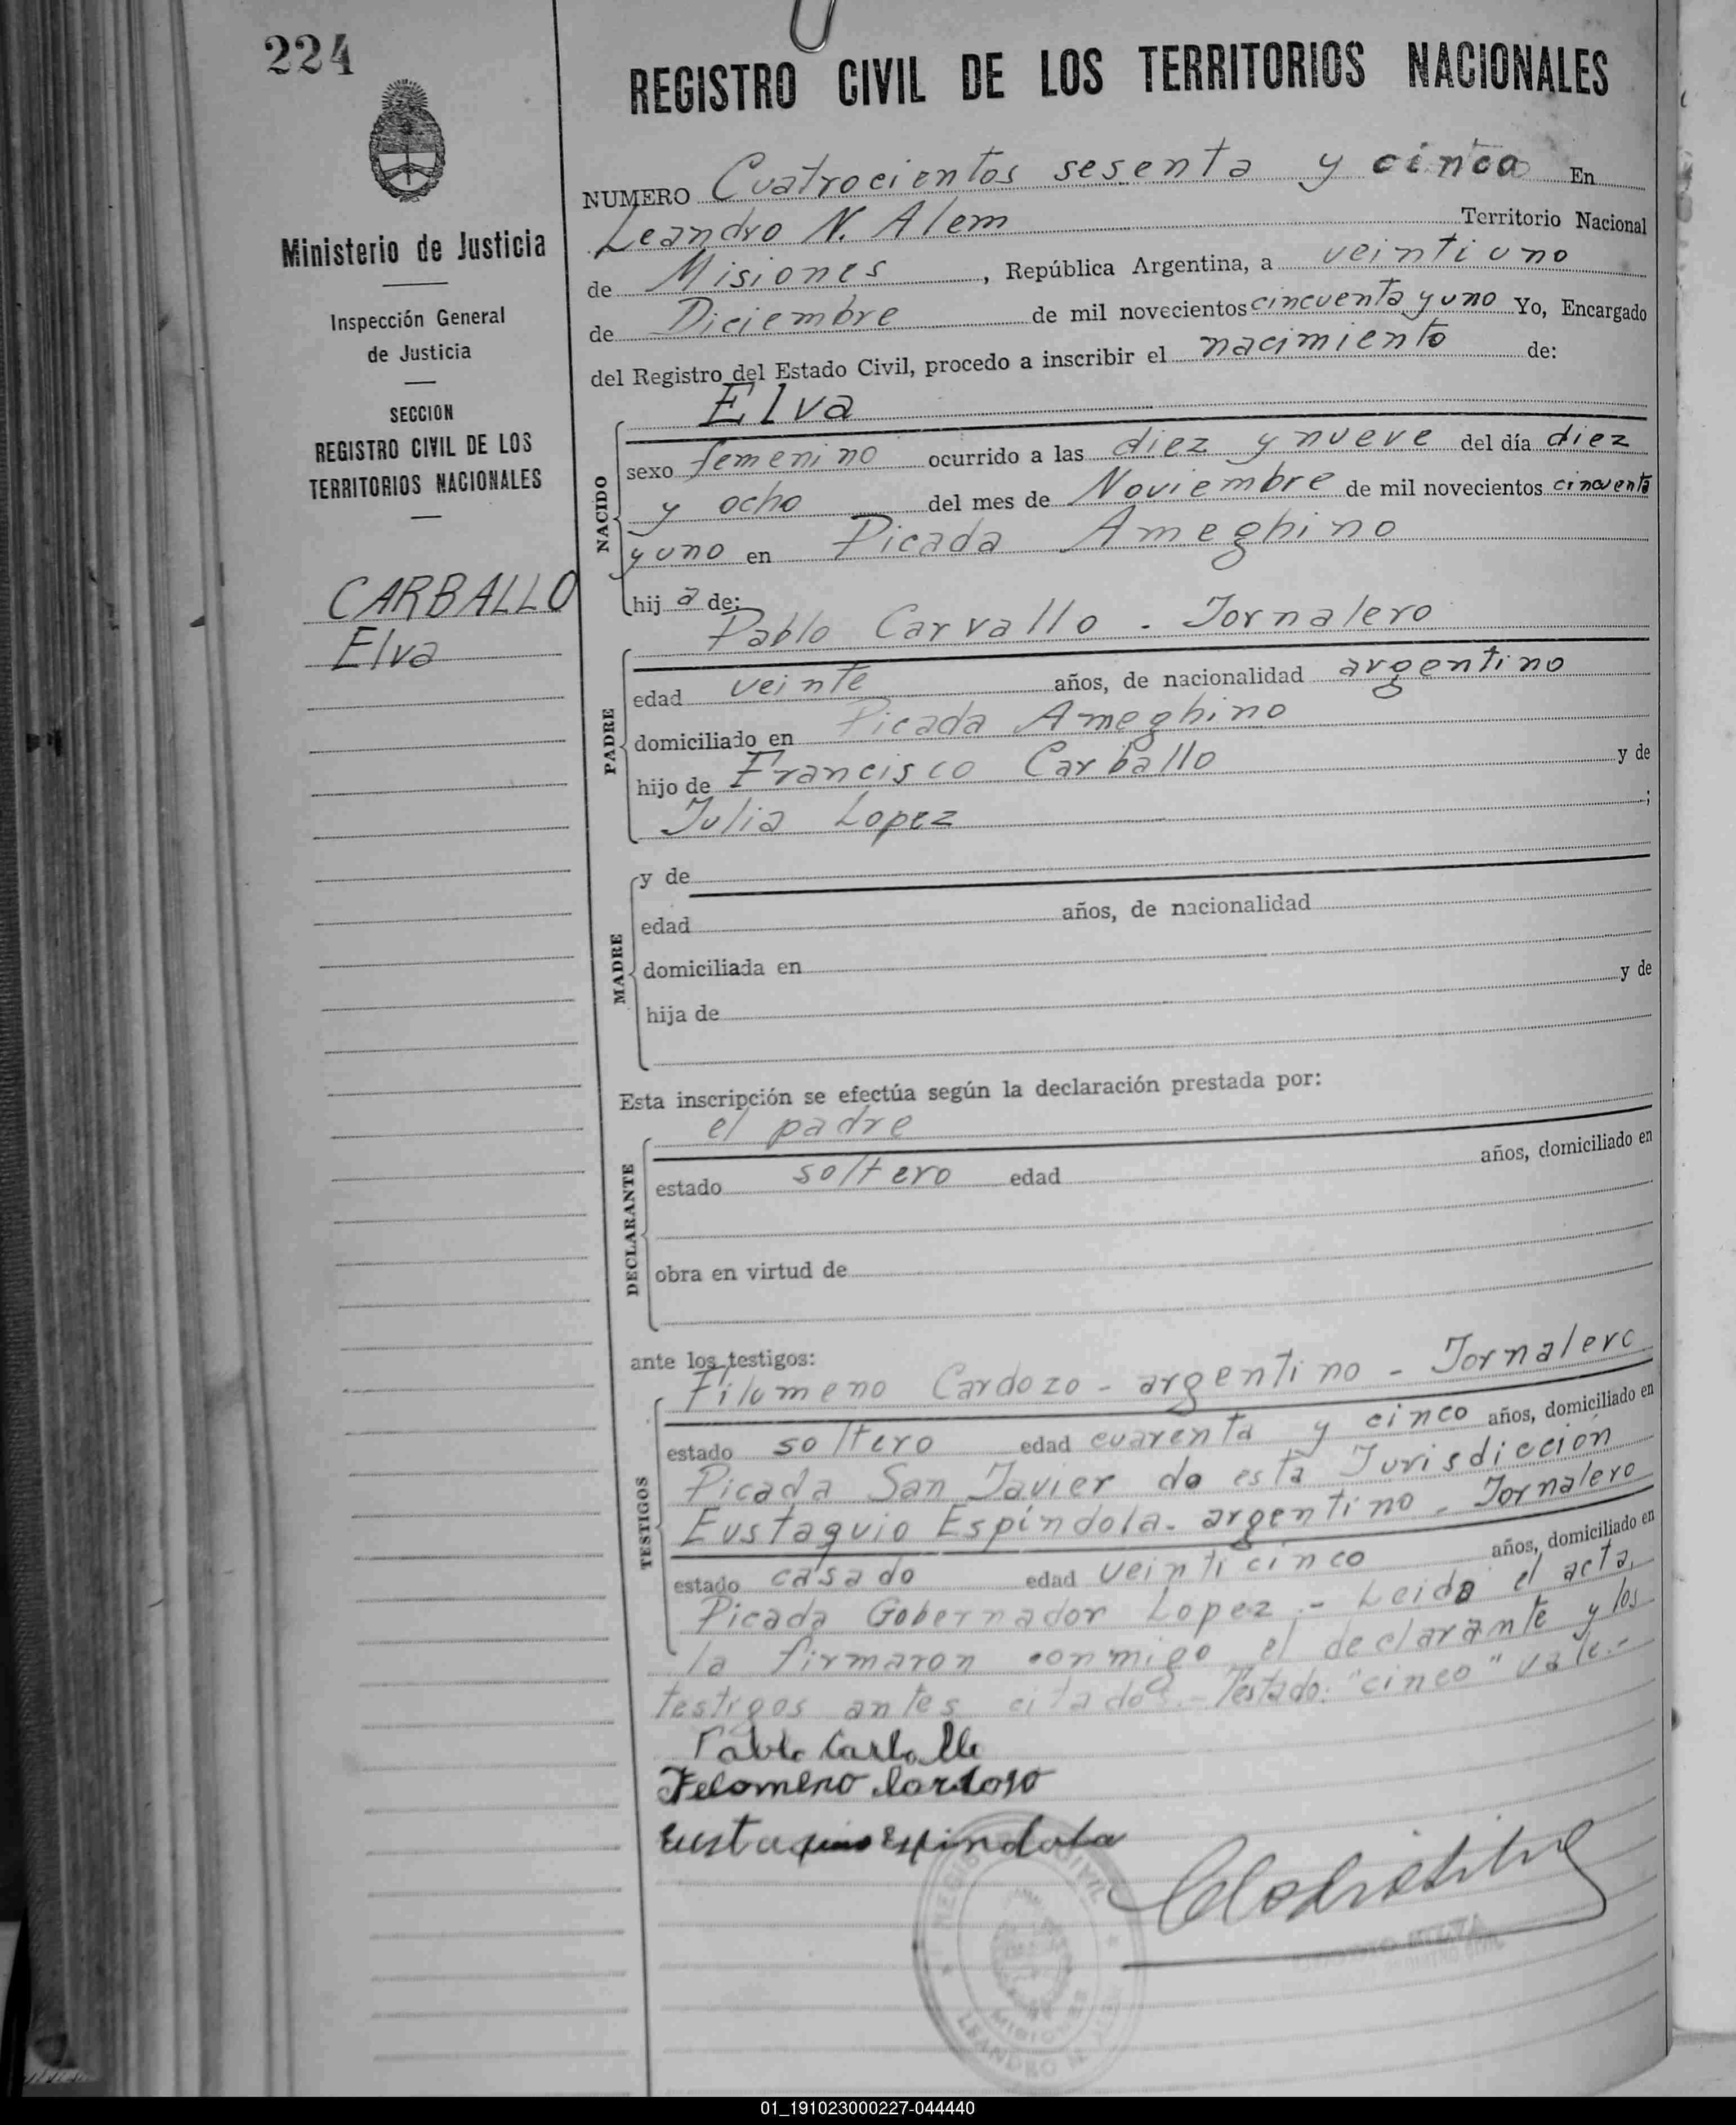 224
REGISTRO CIVIL DE LOS TERRITORIOS NACIONALES
Ministerio de Justicia
Inspección General
de Justicia
SECCION
REGISTRO CIVIL DE LOS
TERRITORIOS NACIONALES
CARBALLO
Elva
NUMERO Cuatrocientos sesenta y cinco En
Leandro N. Alem Territorio Nacional
de Misiones, República Argentina, a veintiuno
de Diciembre de mil novecientos cincuenta y uno Yo, Encargado
del Registro del Estado Civil, procedo a inscribir el nacimiento de:
NACIDO
Elva
sexo femenino ocurrido a las diez y nueve del día diez
y ocho del mes de Noviembre de mil novecientos cincuenta
y uno en Picada Ameghino
hij a de:
PADRE
Pablo Carvallo - Jornalero
edad veinte años, de nacionalidad argentino
domiciliado en Picada Ameghino
hijo de Francisco Carballo y de
Julia Lopez ;
MADRE
y de
edad años, de nacionalidad
domiciliada en
hija de y de
Esta inscripción se efectúa según la declaración prestada por:
DECLARANTE
el padre
estado soltero edad años, domiciliado en
obra en virtud de
ante los testigos:
TESTIGOS
Filomeno Cardozo - argentino - Jornalero
estado soltero edad cuarenta y cinco años, domiciliado en
Picada San Javier de esta Jurisdicción
Eustaquio Espíndola - argentino - Jornalero
estado casado edad veinticinco años, domiciliado en
Picada Gobernador Lopez.- Leida el acta,
la firmaron conmigo el declarante y los
testigos antes citados.- Testado: "cinco" vale.-
Pablo Carballo
Felomeno Cardoso
Eustaquio Espindola
REGISTRO CIVIL
MISIONES
LEANDRO N. ALEM
01_191023000227-044440